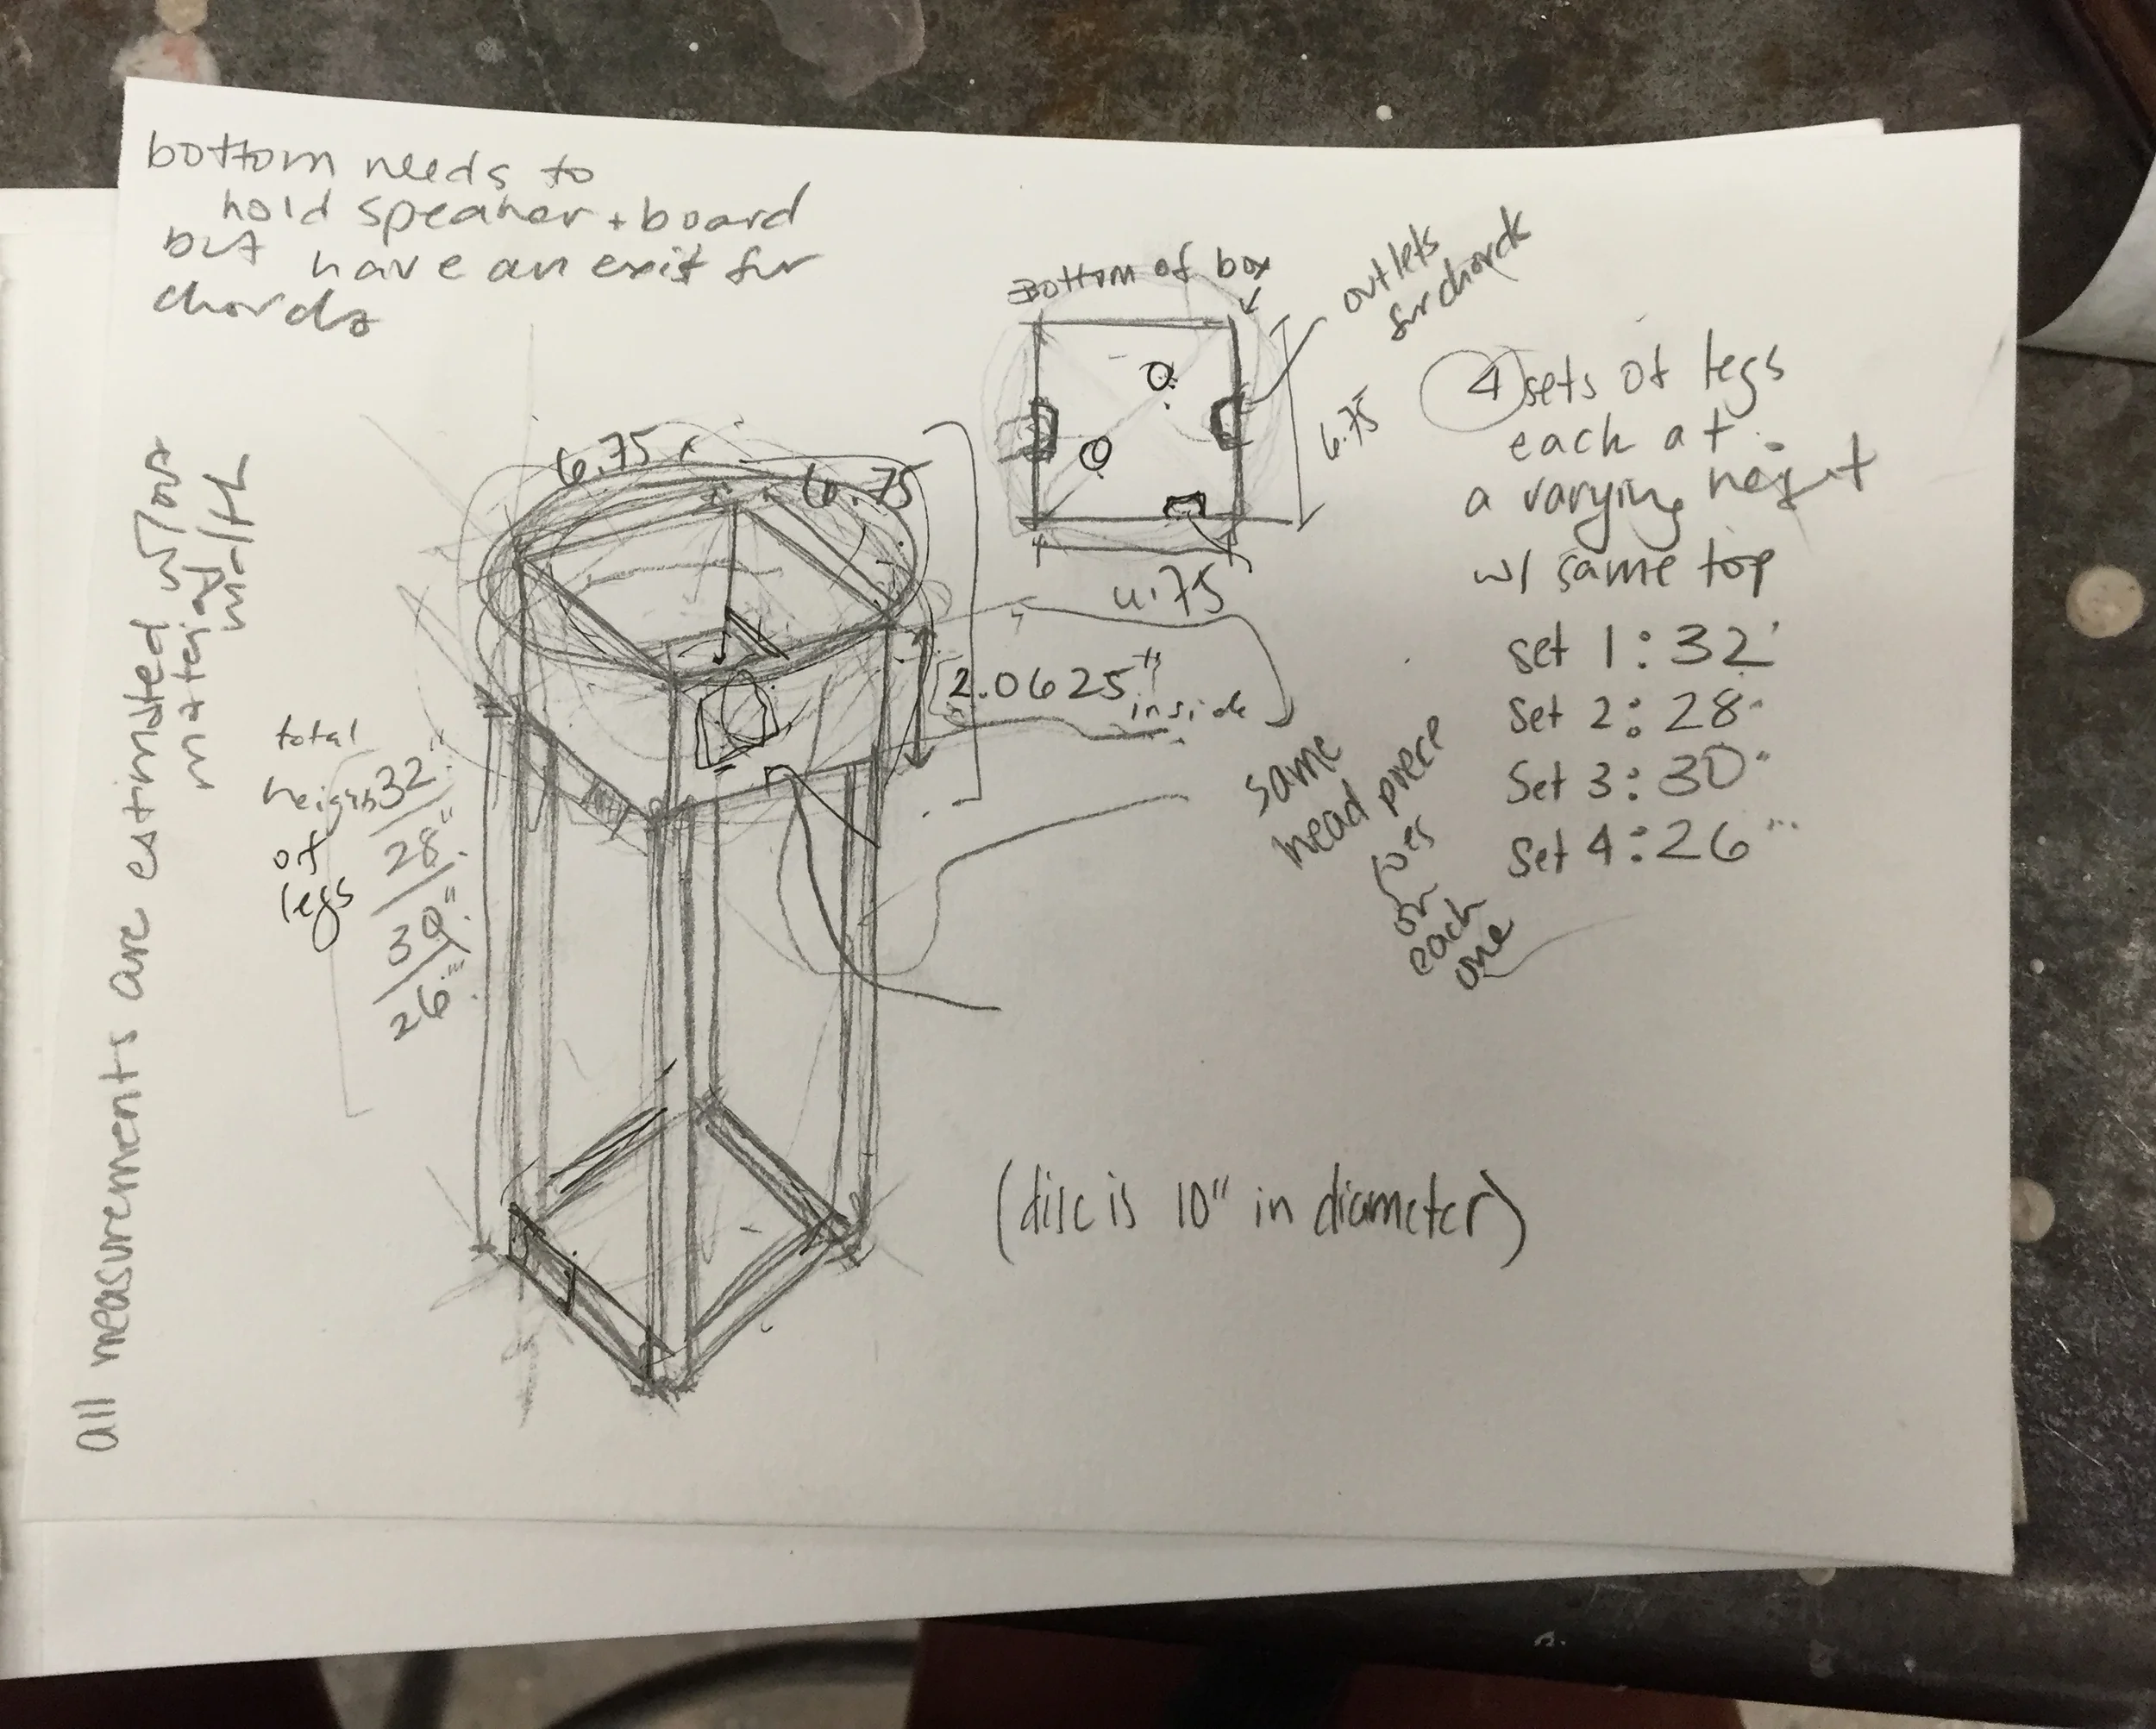 bottom needs to
hold speaker + board
but have an exit for
chords
Bottom of box
outlets
for chords
6.75
6.75
6.75
6.75
2.0625"
inside
4 sets of legs
each at
a varying height
w/ same top
set 1: 32"
Set 2: 28"
Set 3: 30"
Set 4: 26"
same
head piece
goes
on
each
one
total
height
of
legs
32"
28"
30"
26"
all measurements are estimated w/out
material
width
(disc is 10" in diameter)